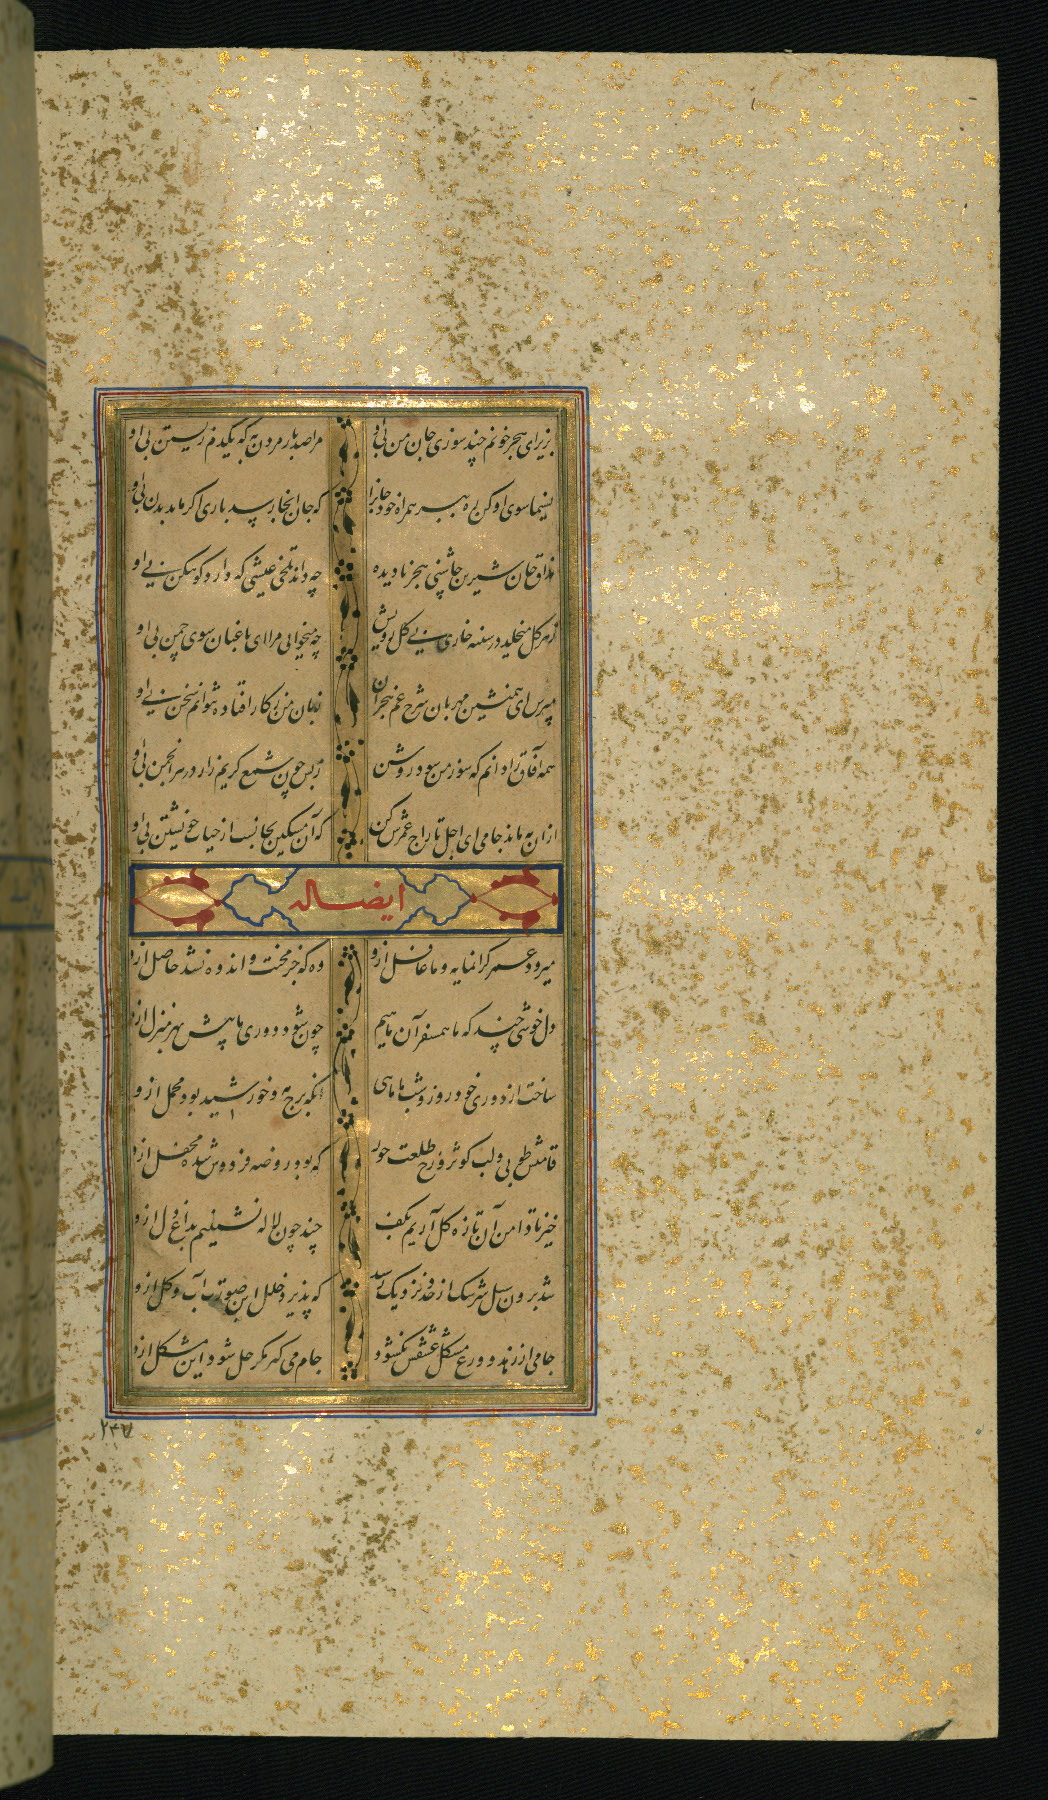 بریز ای هجر خونم چند سوزی جان من بی او
مرا صد بار مردن به که یکدم زیستن بی او
نسیما سوی او کن ره ببر همراه خود جانرا
که جان آنجا رسد باری اگر ماند بدن بی او
مذاق جان شیرین چاشنی هجر نادیده
چه داند تلخی عیشی که دارد کوهکن بی او
ز هر گل میخلد در سینه خاری بی گل رویش
چه میخوانی مرا ای باغبان سوی چمن بی او
مپرس ای همنشین مهربان شرح غم هجران
زبان من ز کار افتاده نتوانم سخن بی او
همه آفاق را دانم که سوز من شود روشن
ز بس چون شمع گریم زار در هر انجمن بی او
ازان به ماند جامی ای اجل تاراج عمرش کن
که آن مسکین بجانست از حیات خویشتن بی او
ایضا له
میرود عمر گرانمایه و ما غافل ازو
وه که جز محنت و اندوه نشد حاصل ازو
دل خوشی چند که ما همسفر آن ماهیم
چون شود دوری ما بیش بهر منزل ازو
ساخت از دوری خود روز و شب ما ماهی
آنکه برج مه و خورشید بود محمل ازو
قامتش طوبی و لب کوثر و رخ طلعت حور
که بود روضه فردوس شده محفل ازو
خیز تا دامن آن تازه گل آریم بکف
چند چون لاله نشینیم بداغ دل ازو
شد برون سیل سرشک از حد و نزدیک رسید
که پذیرد خلل این صورت آب و گل ازو
جامی از زهد و ورع مشکل عشقش نگشود
جام می گیر مگر حل شود این مشکل ازو
۲۴۷